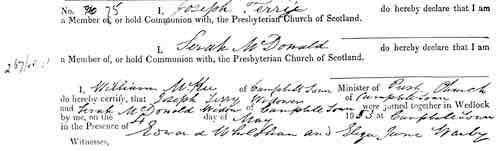 No. 75 I, Joseph Terrie do hereby declare that I am
a Member of, or hold Communion with, the Presbyterian Church of Scotland.
I, Serah McDonald do hereby declare that I am
a Member of, or hold Communion with, the Presbyterian Church of Scotland.
I, William McKee of Campbell Town Minister of Presb Church
do hereby certify, that Joseph Terry Widower of Campbell Town
and Serah McDonald Widow of Campbell Town were joined together in Wedlock
by me, on the 4 day of May 1853 at Campbell Town
in the Presence of Edward Wheldhan and Eliza Jane
Witnesses,